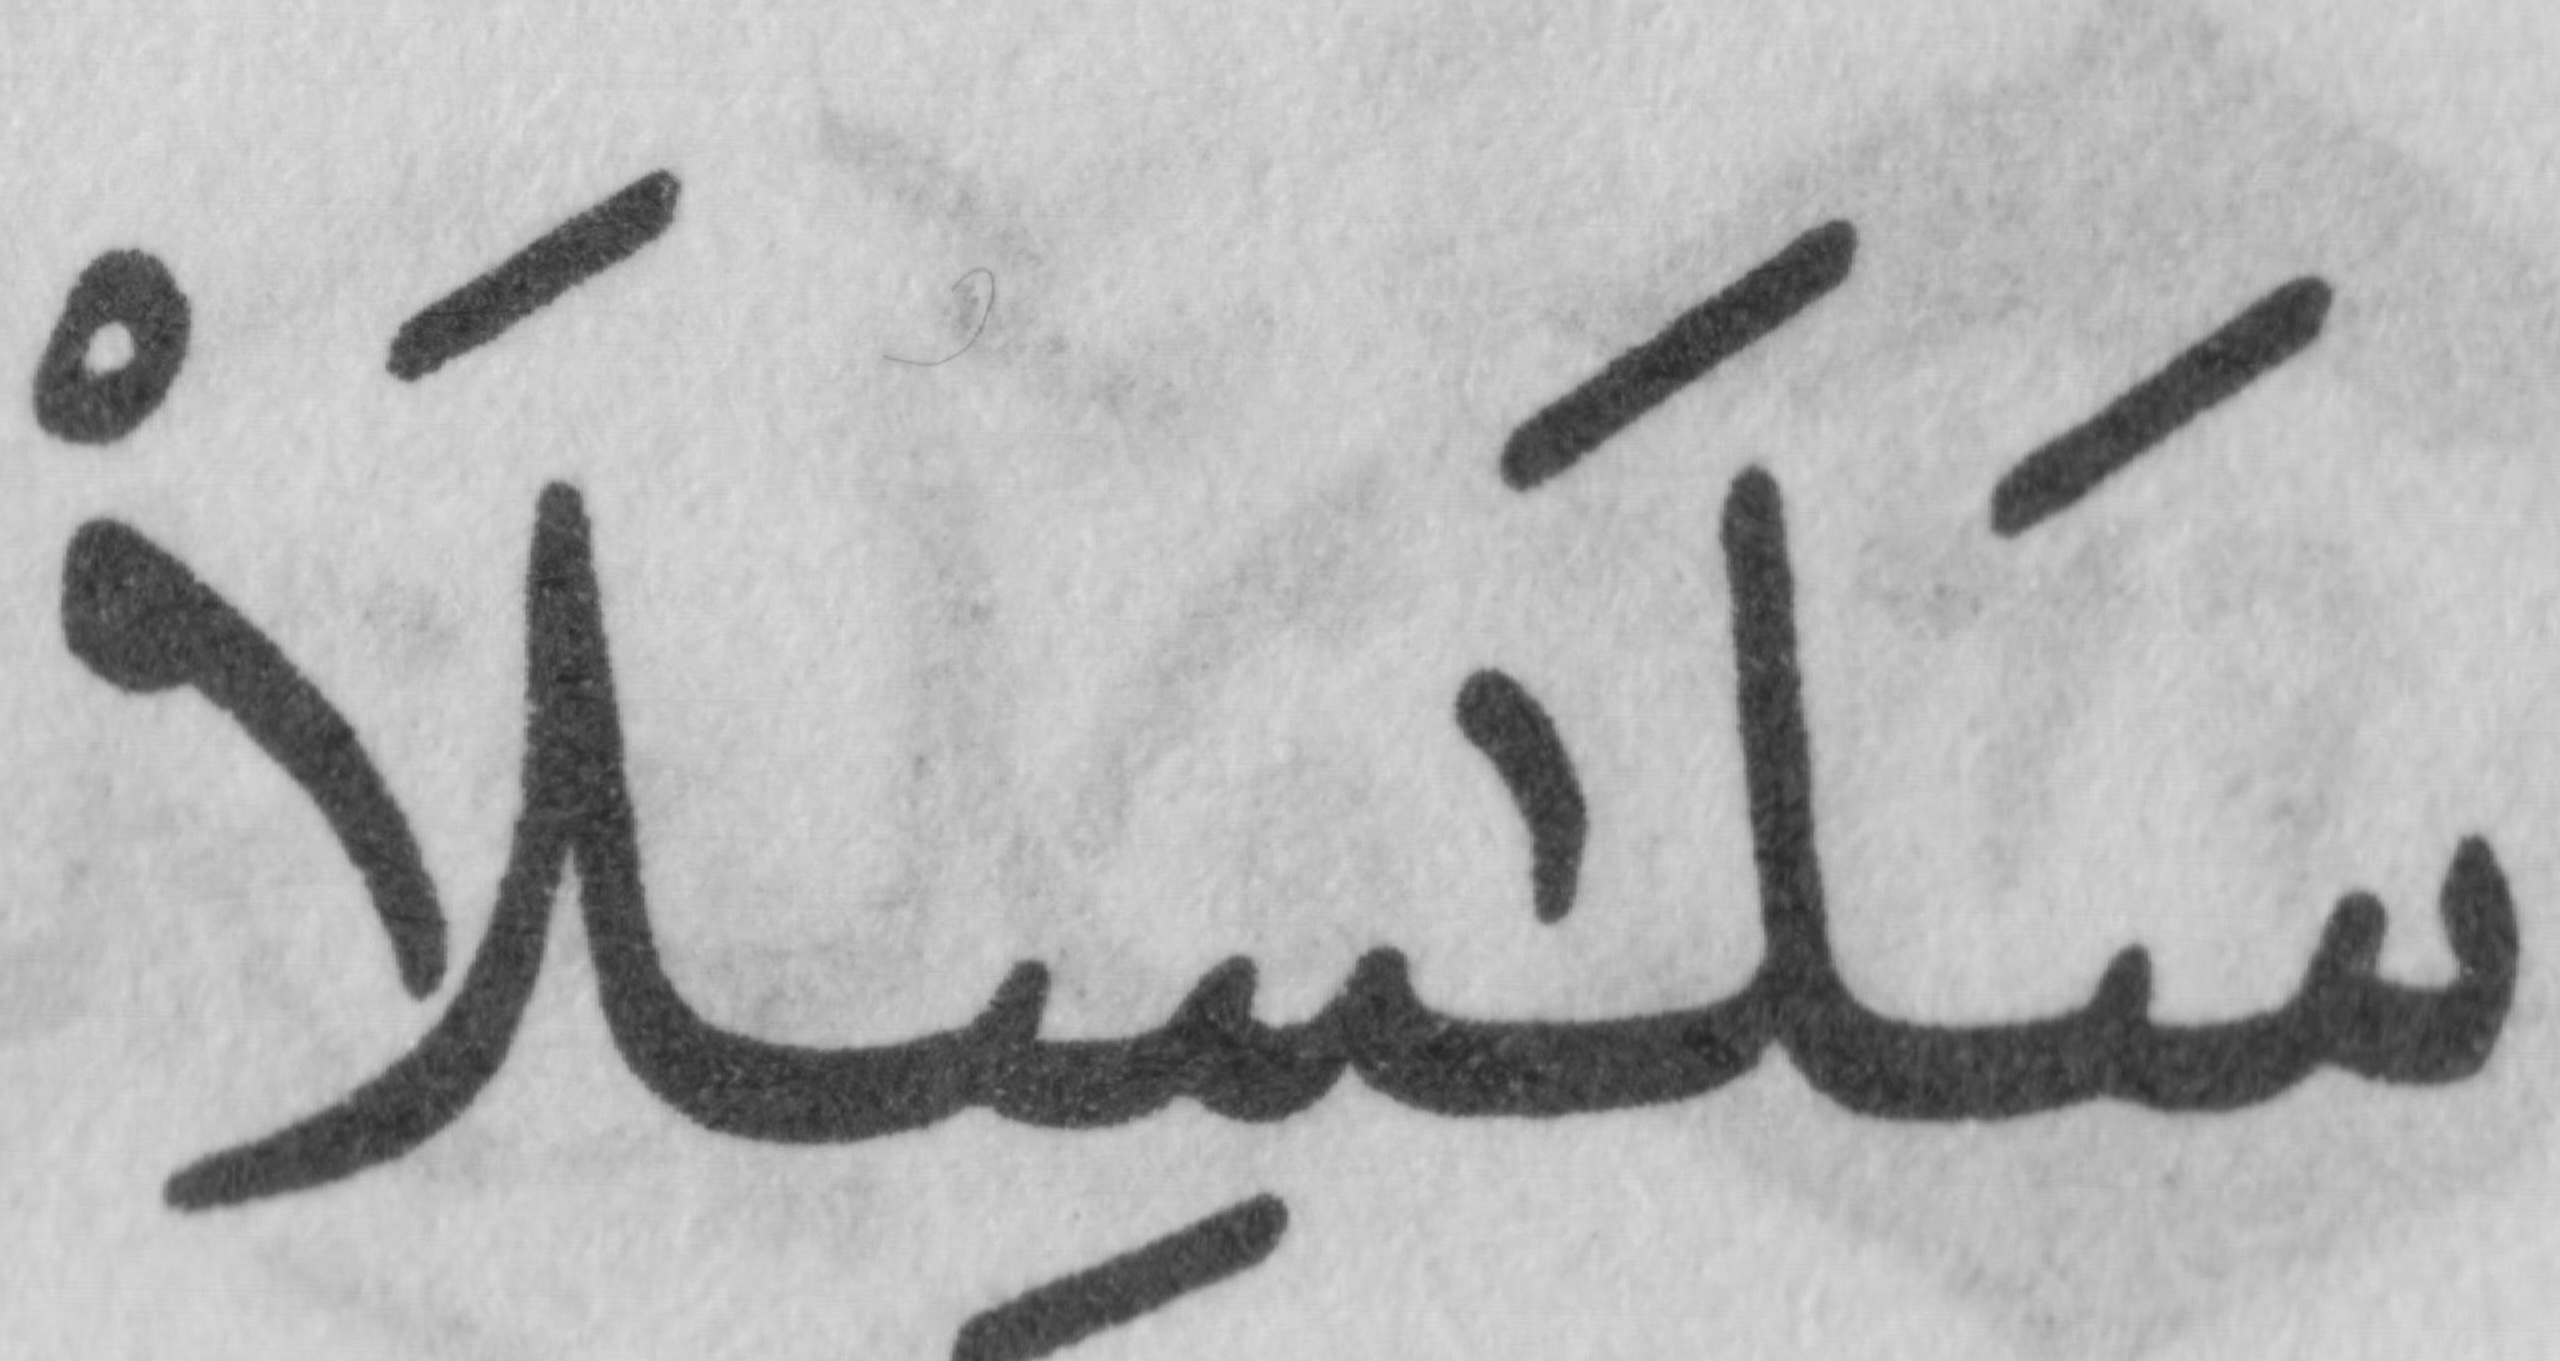 سَلَٰسِلَا۟